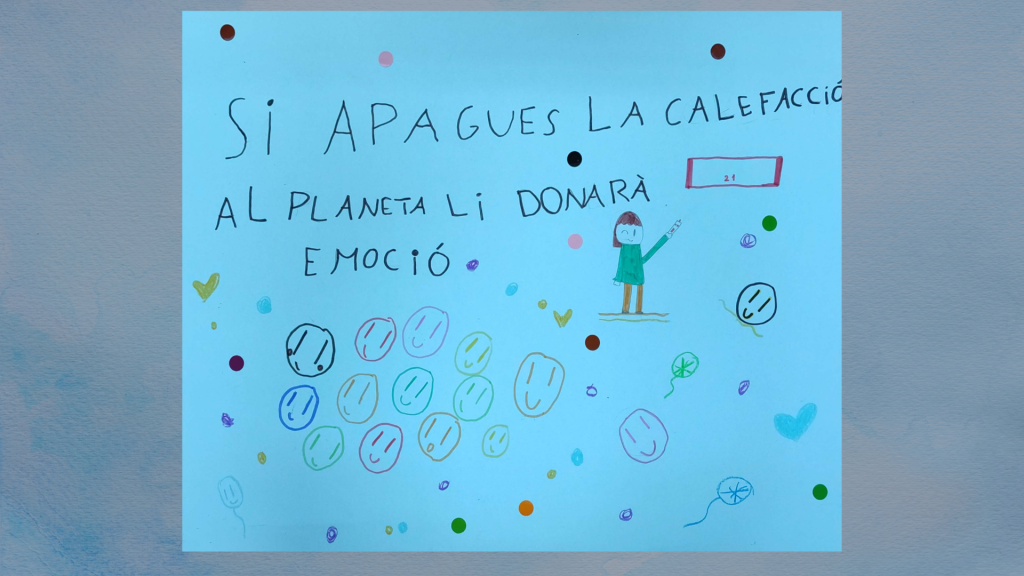 SI APAGUES LA CALEFACCIÓ
21
AL PLANETA LI DONARÀ
EMOCIÓ